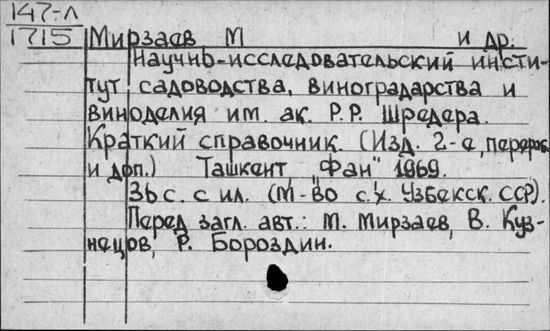 147-Л
1715
Мирзаев М и др.
Научно-исследовательский инсти-
тут садоводства, виноградарства и
виноделия им. ак. Р.Р. Шредера.
Краткий справочник. (Изд. 2-е, перераб.
и доп.) Ташкент, "Фан" 1969.
36 с. с ил. (М-во с.х. Узбекск. ССР).
Перед загл. авт.: М. Мирзаев, В. Куз-
нецов, Р. Бороздин.